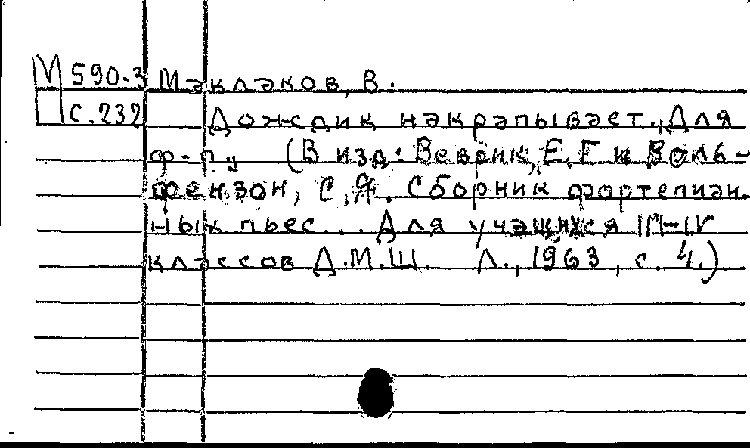 М 590.3 Маклаков, В.
С.232 Дождик накрапывает. Для
ф-п. (В изд: Веврик, Е.Г и Воль-
фензон, С.Я. Сборник фортепиан.
ных пьес... Для учащихся III-IV
классов Д.М.Ш. Л., 1963, с. 4.)